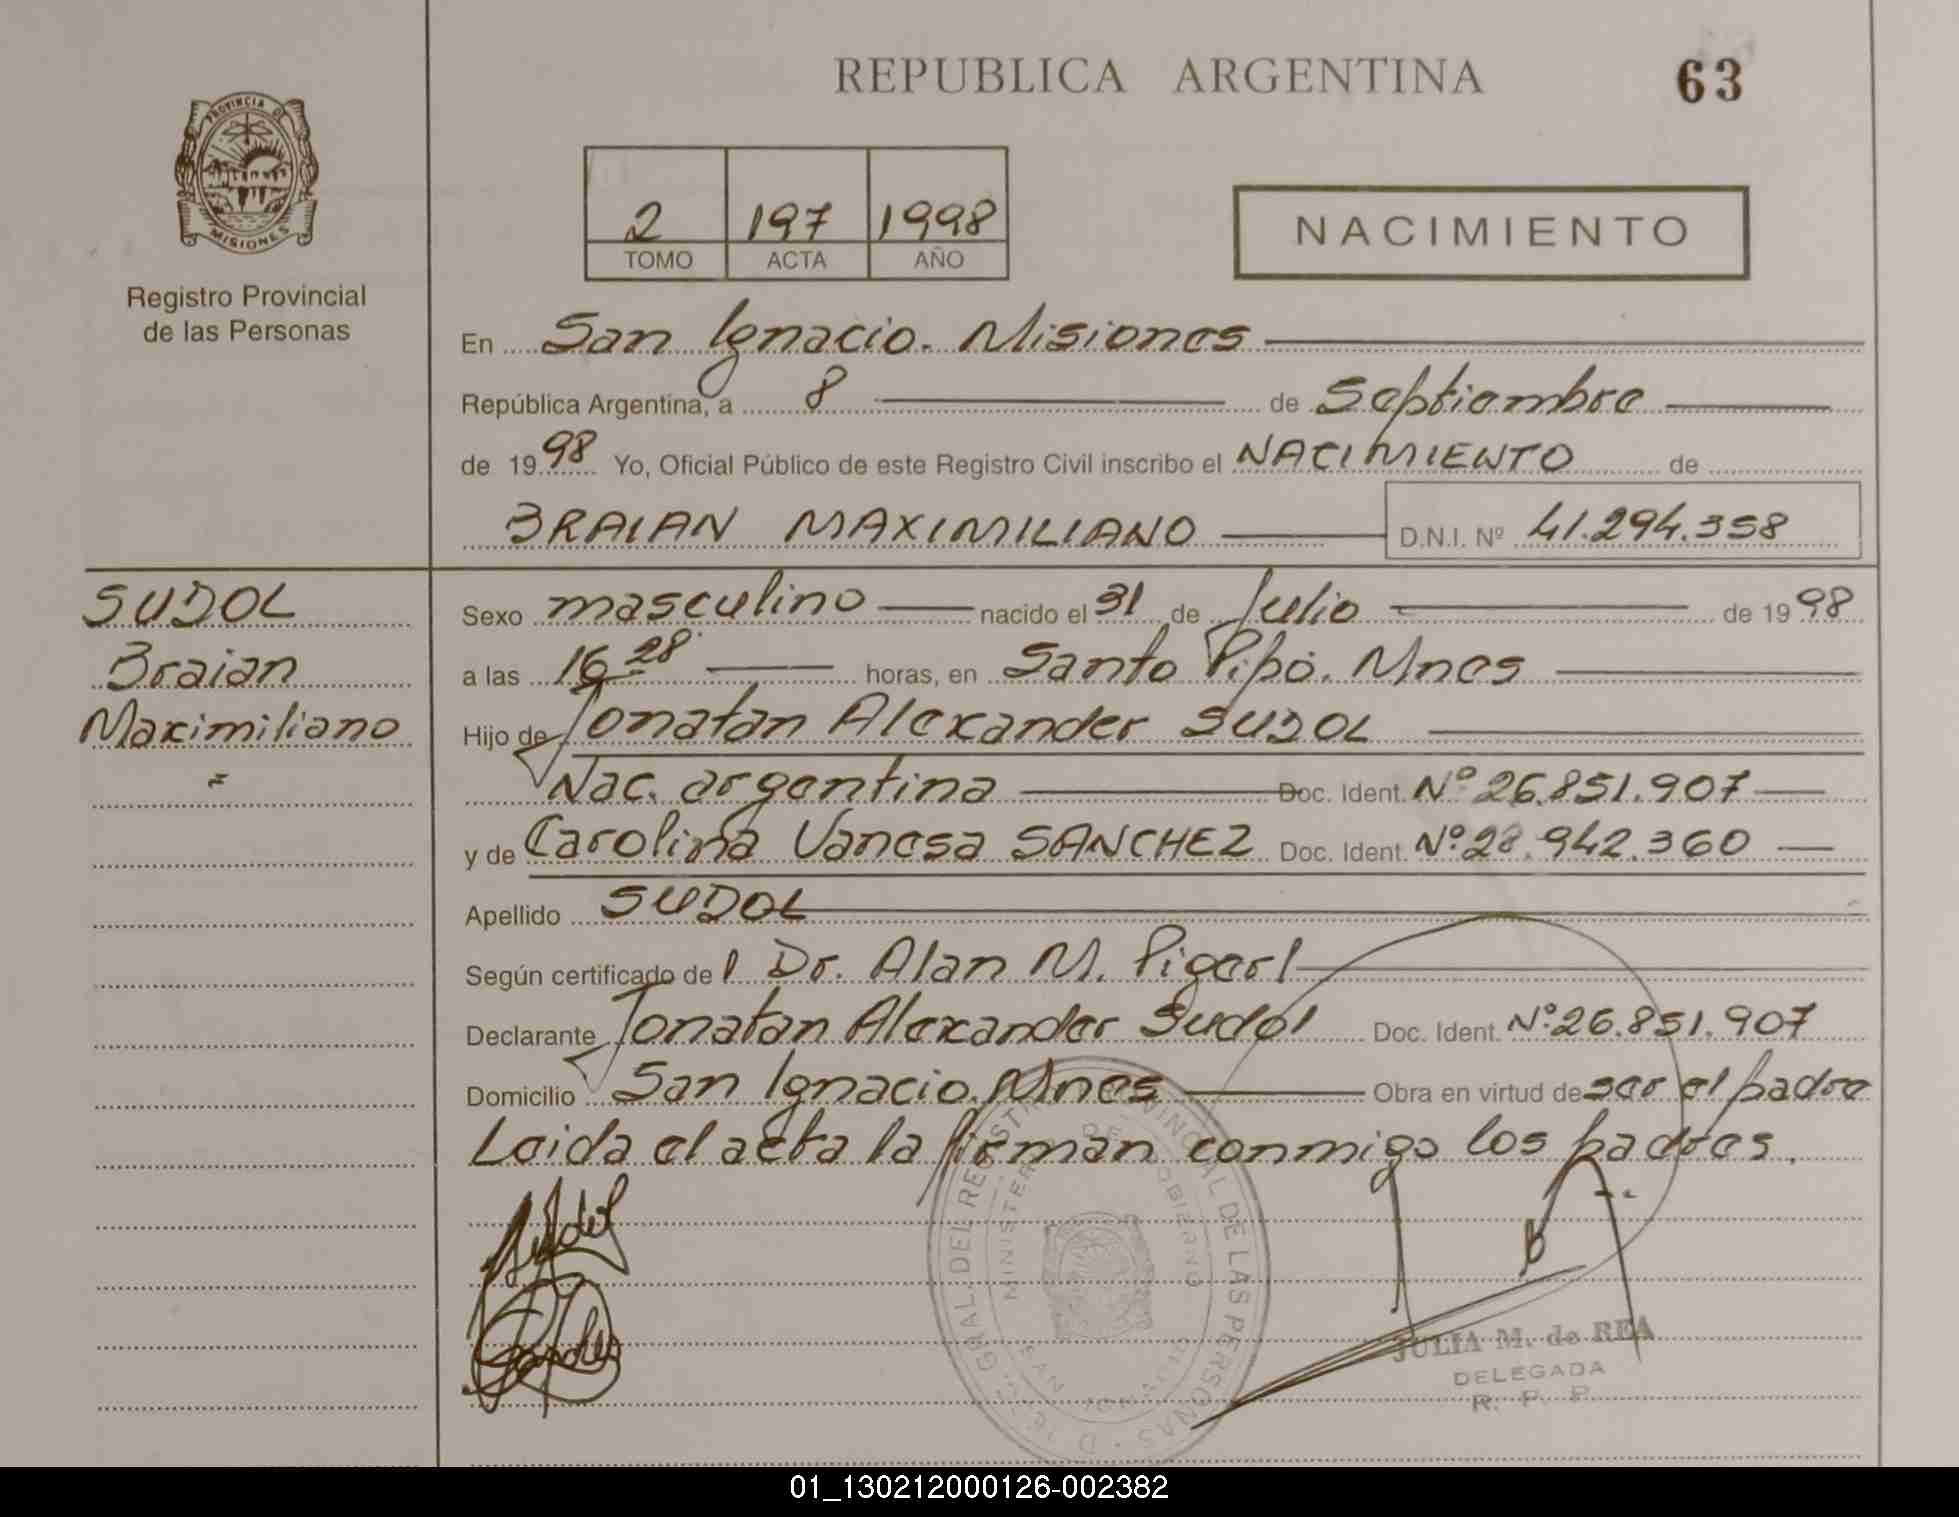 REPUBLICA ARGENTINA
63
PROVINCIA DE
MISIONES
Registro Provincial
de las Personas
2 197 1998
TOMO ACTA AÑO
NACIMIENTO
En San Ignacio. Misiones
República Argentina, a 8 de Septiembre
de 1998 Yo, Oficial Público de este Registro Civil inscribo el NACIMIENTO de
BRAIAN MAXIMILIANO D.N.I. Nº 41.294.358
SUDOL
Braian
Maximiliano
=
Sexo masculino nacido el 31 de Julio de 1998
a las 16 28 horas, en Santo Pipó. Mnes
Hijo de Jonatan Alexander SUDOL
Nac. argentina Doc. Ident. Nº 26.851.907
y de Carolina Vanesa SANCHEZ Doc. Ident. Nº 28.942.360
Apellido SUDOL
Según certificado del Dr. Alan M. Pigerl
Declarante Jonatan Alexander Sudol Doc. Ident. Nº 26.851.907
Domicilio San Ignacio. Mnes Obra en virtud de ser el padre
Leida el acta la firman conmigo los padres.
GRAL. DEL REGISTRO PROVINCIAL DE LAS PERSONAS
MINISTERIO DE GOBIERNO
SAN IGNACIO
JULIA M. de REA
DELEGADA
R. P. P.
01_130212000126-002382